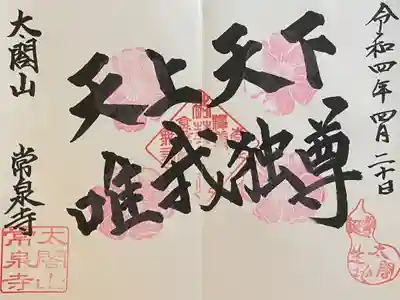 令和四年 四月二十日
天上天下
唯我独尊
太閤山 常泉寺
太閤山
常泉寺
太閤